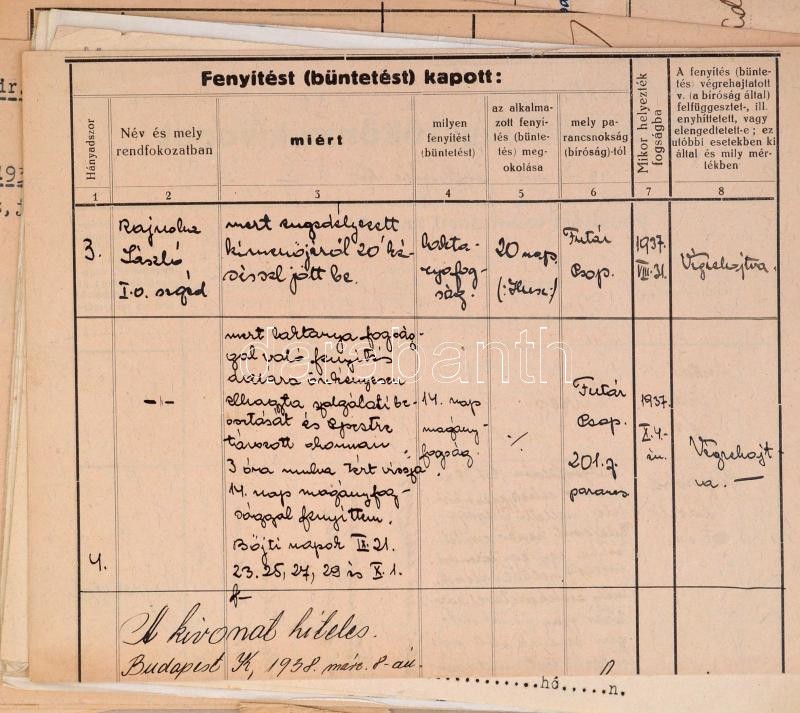 Fenyítést (büntetést) kapott:
Hányadszor
Név és mely
rendfokozatban
miért
milyen
fenyítést
(büntetést)
az alkalma-
zott fenyí-
tés (bünte-
tés) meg-
okolása
mely pa-
rancsnokság
(bíróság)-tól
Mikor helyezték
fogságba
A fenyítés (bünte-
tés) végrehajtatott
v. (a bíróság által)
felfüggesztet-, ill.
enyhíttetett, vagy
elengedtetett-e; ez
utóbbi esetekben ki
által és mily mér-
tékben
1
2
3
4
5
6
7
8
3.
László
I.o. segéd
mert engedélyezett
kimenőjéről 20' ké-
séssel jött be.
lakta-
nyafog-
ság.
20 nap.
Futár
Csop.
1937.
VIII.31.
Végrehajtva.
4.
-"-
mert laktanya fogság-
gal való fenyítés
dacára önkényesen
elhagyta szolgálati be-
osztását és
távozott ahonnan
3 óra mulva tért vissza
14. nap magányfog-
sággal fenyítem.
Bőjti napok IX.21.
23. 25, 27, 29 és X.1.
14. nap
magány-
fogság.
·/·
Futár
Csop.
201.
parancs
1937.
X.4.-
én.
Végrehajt-
va. —
A kivonat hiteles.
Budapest K, 1938. márc. 8-án.
hó.....n.
darabanth